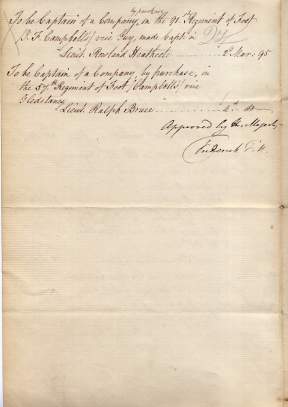 by purchase
To be Captain of a Company, in the 91st Regiment of Foot
D. F. Campbell's vice Guy, made Captn in Dy
Lieut. Rowland Heathcote 3d Mar. 95
To be Captain of a Company, by purchase, in
the 57th Regiment of Foot, Campbell's vice
Gledstanes
Lieut. Ralph Bruce 4th do
Approved by His Majesty,
Frederick